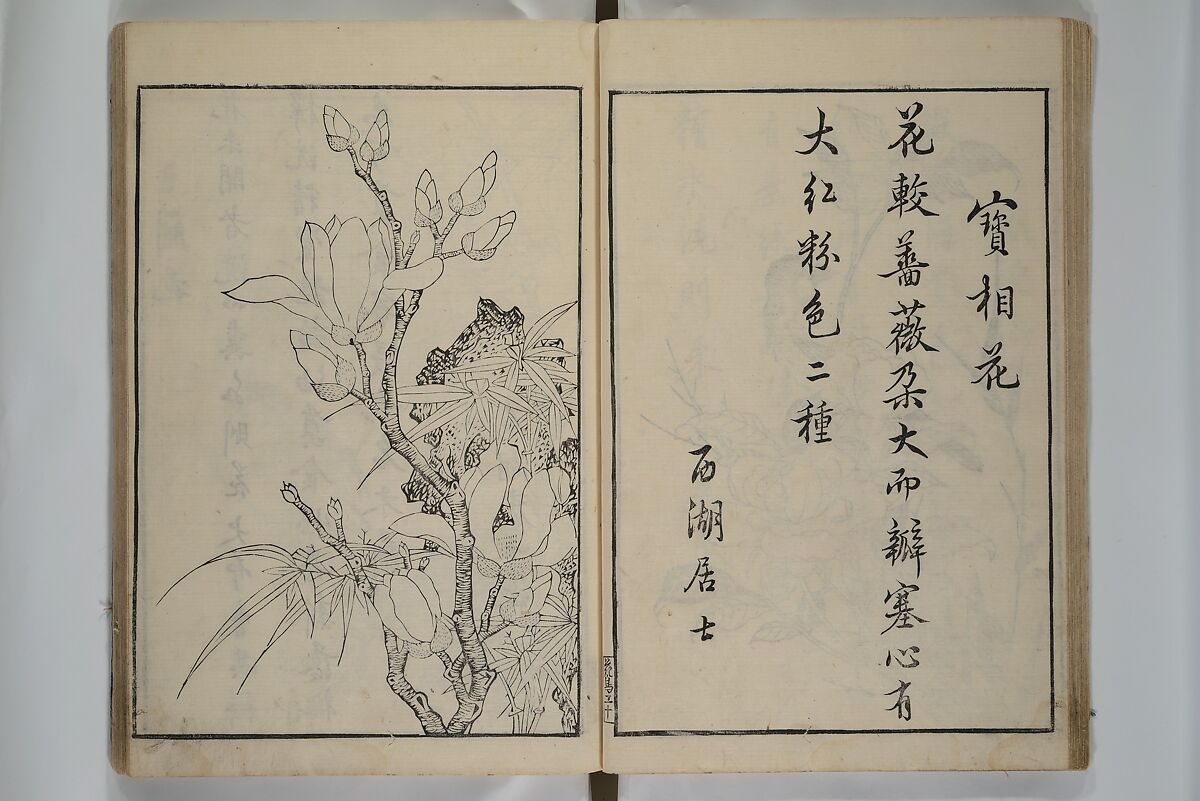 寶相花
花較薔薇朶大而瓣塞心有
大紅粉色二種
西湖居士